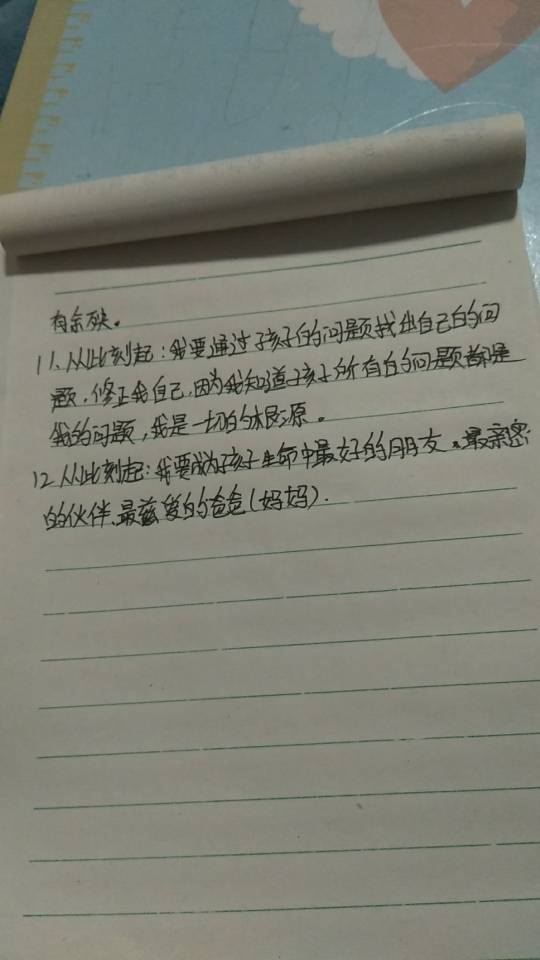 有余殃。
11、从此刻起:我要通过孩子的问题找出自己的问
题,修正我自己,因为我知道孩子所有的问题都是
我的问题,我是一切的根源。
12 从此刻起:我要成为孩子生命中最好的朋友、最亲密
的伙伴、最慈爱的爸爸(妈妈).